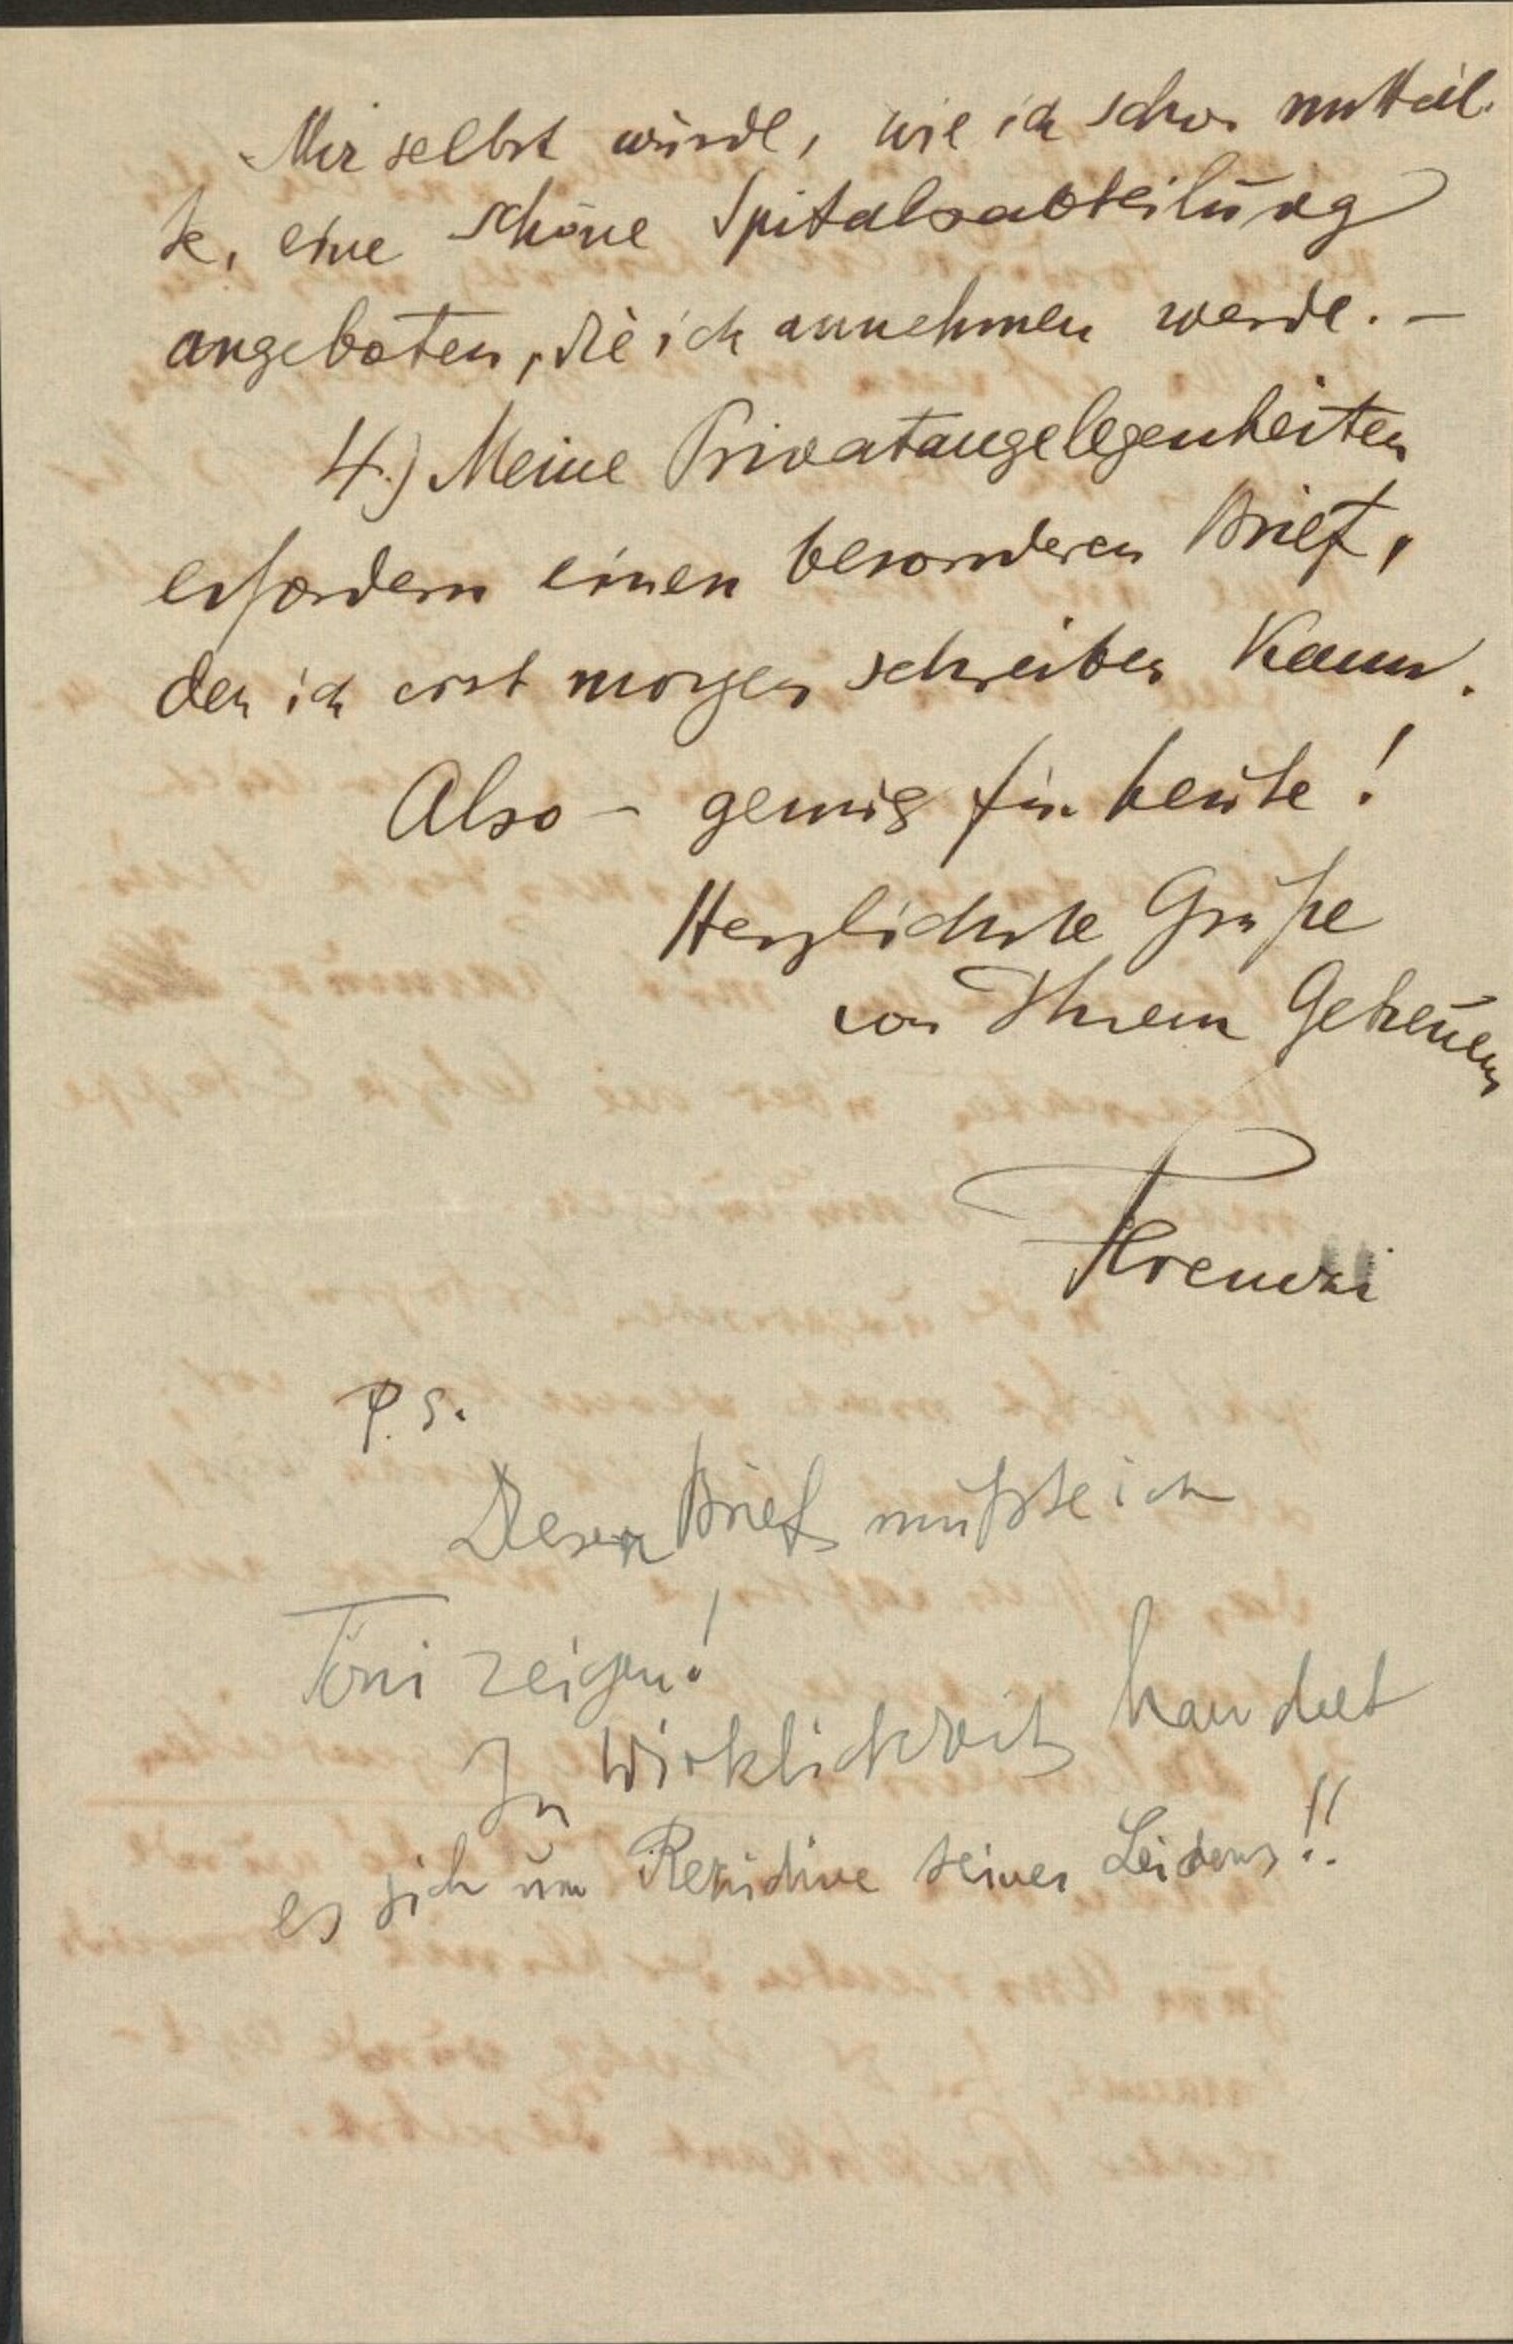 Mir selbst würde, wie ich schon mitteil-
te, eine schöne Spitalsabteilung
angeboten, die ich annehmen werde. –
4.) Meine Privatangelegenheiten
erfordern einen besonderen Brief,
den ich erst morgen schreiben kann.
Also – genug für heute!
Herzlichste Grüße
von Ihrem Getreuen
Ferenczi
P.S.
Diesen Brief mußte ich
Toni zeigen!
In Wirklichkeit handelt
es sich um Rezidive seines Leidens!!